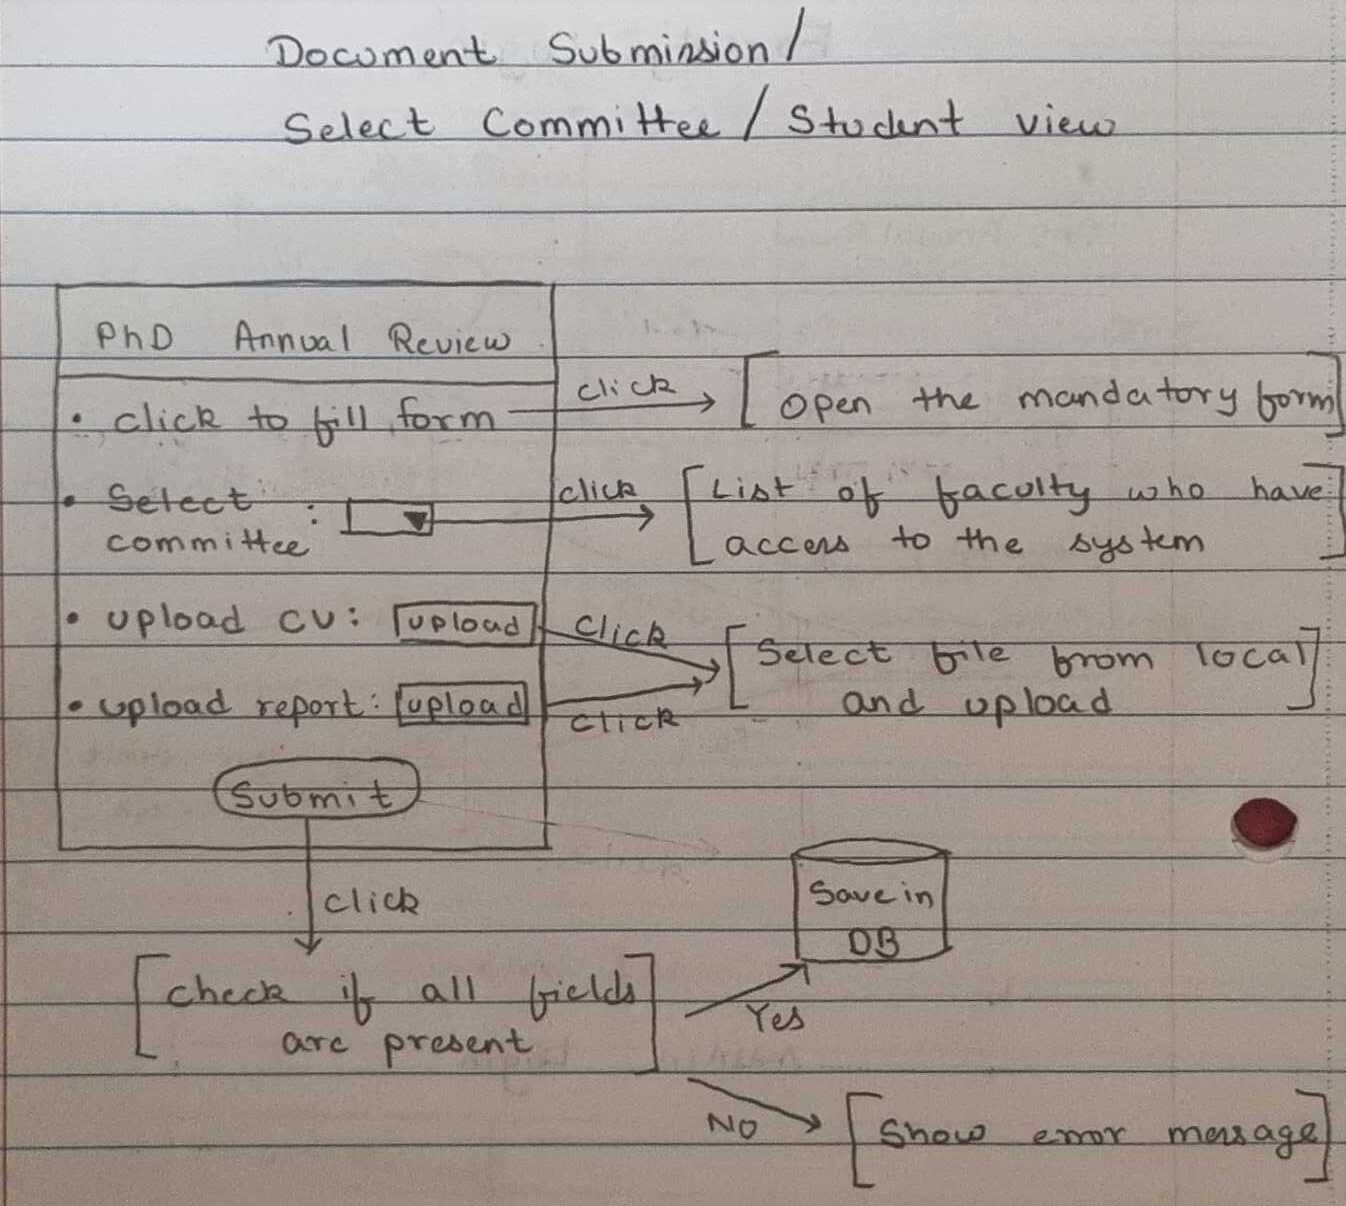 Document Submission/
Select Committee / Student view
PhD Annual Review
• click to fill form
click
[Open the mandatory form]
• Select
committee :
click
[List of faculty who have
access to the system]
• upload CV: upload
click
• upload report: upload
click
[Select file from local
and upload]
Submit
click
Save in
DB
[check if all fields
are present]
Yes
NO
[Show error message]